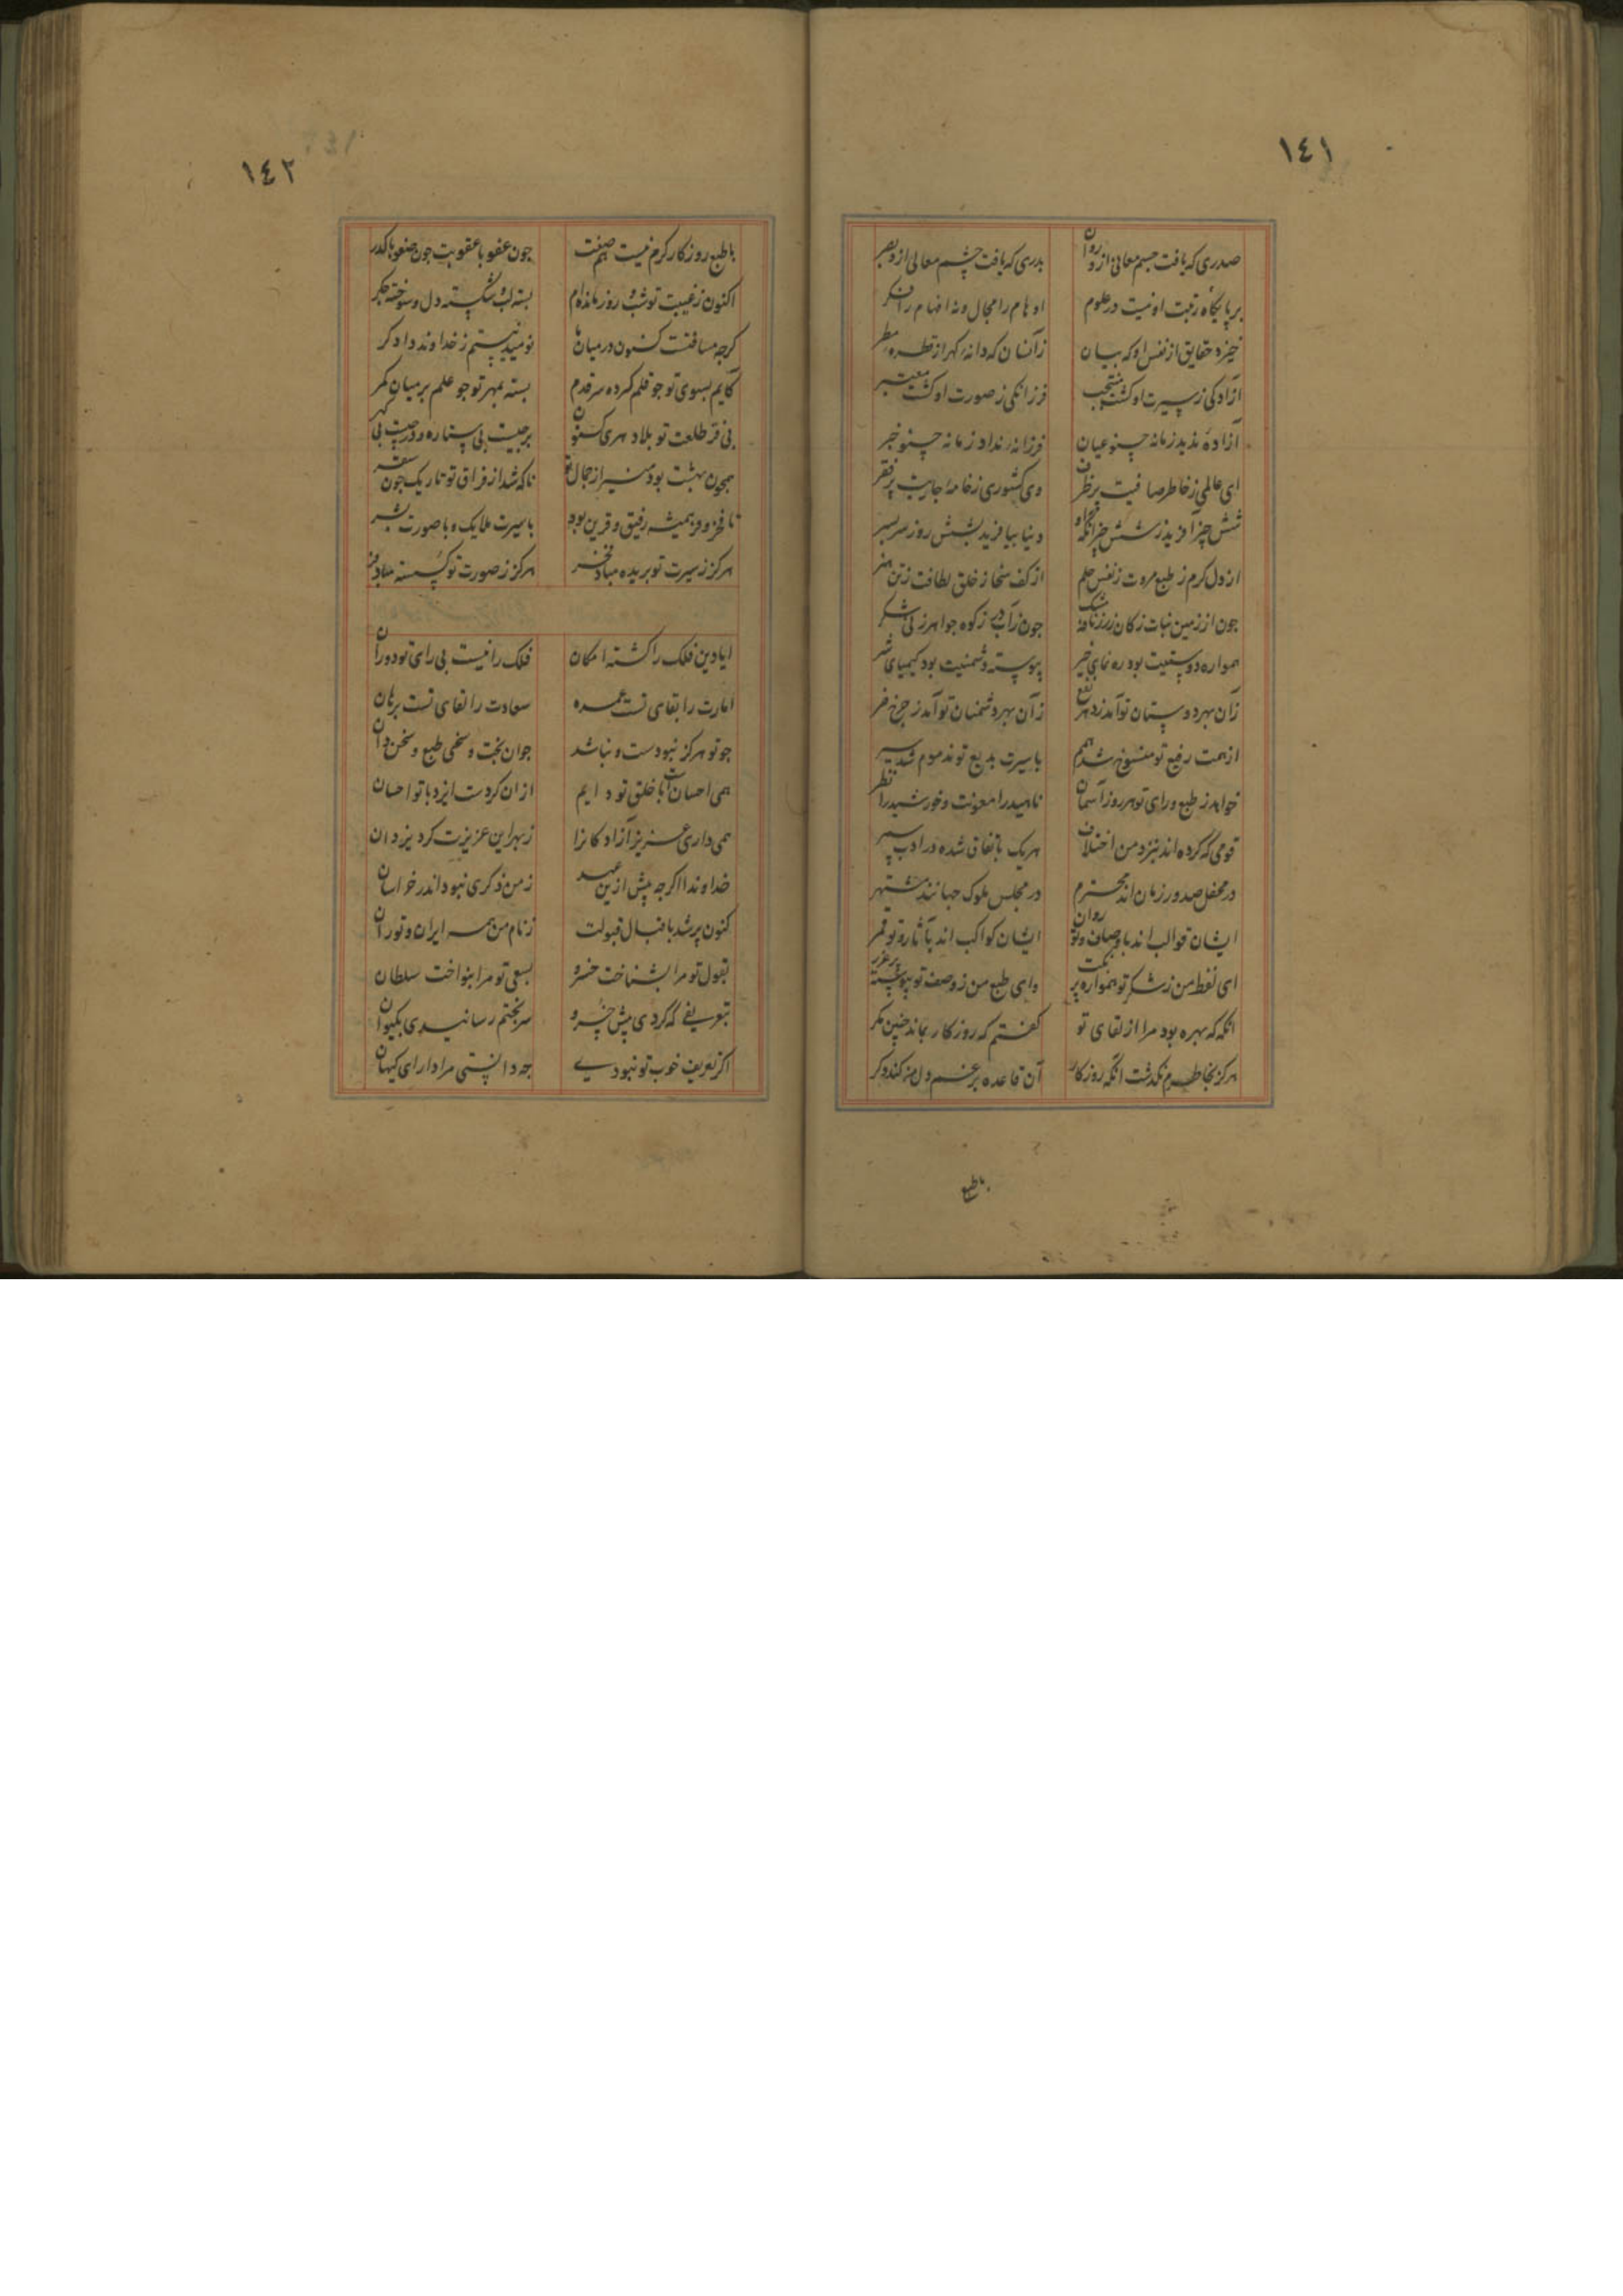 ١٤١
صدری که یافت جسم معانی ازو روان بدری که یافت چشم معالی ازو بصر
بر پایکاه رتبت او نیست در علوم اوهام را مجال و نه افهام را فکر
خیزد حقایق از نفس او که بیان زآنسان که دانه کهر از قطره مطر
ازادکی ز سیرت او کشت منتجب فرزانکی ز صورت او کشت معتبر
آزاده ندید زمانه چنو عیان فرزانه نداد زمانه چنو خبر
ای عالمی ز خاطر صافیت پر ظرف وی کشوری ز خامه جاریت پر فقر
شش چیز آفرید ز شش چیز انکه او دنیا بیافرید بشش روز سربسر
از دل کرم ز طبع مروت ز نفس حلم از کف سخا ز خلق لطافت ز تن هنر
جون از زمین نبات ز کان زر ز نافه مشک جون ز آب در ز کوه جواهر ز نی شکر
همواره دوستیت بود ره نمای خیر پیوسته دشمنیت بود کیمیای شر
زان بهر دوستان تو آمد ز دهر نفع زان بهر دشمنان تو آمد ز جرخ ضر
از همت رفیع تو منسوخ شد همم با سیرت بدیع تو مذموم شد سیر
خواهد ز طبع و رای تو هر روز آسمان ناهید را معونت و خورشید را نظر
قومی که کرده اند بنزد من اختلاف هر یک باتفاق شده در ادب سمر
در محفل صدور زمان اند محترم در مجلس ملوک جهانند مشتهر
ایشان قوالب اند باوصاف و تو روان ایشان کواکب اند بآثار و تو قمر
ای لفظ من ز شکر تو همواره پر نکت وای طبع من ز وصف تو پیوسته پر غرر
انکه که بهره بود مرا از لقای تو کفتم که روزکار بماند چنین مکر
هرکز بخاطرم نکذشت انکه روزکار آن قاعده برغم دل من کند دکر
باطبع
١٤٢
با طبع روزکار کرم نیست هم صفت جون عفو با عقوبت جون صفو با کدر
اکنون ز غیبت تو شب و روز مانده‌ام بسته لب و شکسته دل و سوخته جکر
کرجه مسافتست کنون در میان ما نومید نیستم ز خداوند دادکر
کایم بسوی تو جو قلم کرده سر قدم بسته بمهر تو جو علم بر میان کمر
بی فر طلعت تو بلاد هری کنون برجیست بی ستاره و درجیست بی کهر
همجون بهشت بود منیر از جمال تو ناکه شد از فراق تو تاریک جون سقر
تا فخر و فر همیشه رفیق و قرین بود با سیرت ملایک و با صورت بشر
هرکز ز سیرت تو بریده مباد فخر هرکز ز صورت تو کسسته مباد فر
ایا دین فلک را کشته امکان فلک را نیست بی رای تو دوران
امارت را بقای تست عمده سعادت را لقای تست برهان
جو تو هرکز نبودست و نباشد جوان بخت و سخی طبع و سخن دان
همی احسانت با خلق تو دایم ازان کردست ایزد با تو احسان
همی داری عزیز آزادکانرا ز بهر این عزیزت کرد یزدان
خداوندا اکرجه پیش ازین عهد ز من ذکری نبود اندر خراسان
کنون پر شد باقبال قبولت ز نام من همه ایران و توران
بقول تو مرا بشناخت خسرو بسعی تو مرا بنواخت سلطان
بتعریفی که کردی پیش خسرو سر بختم رسانیدی بکیوان
اکر تعریف خوب تو نبودی جه دانستی مرا دارای کیهان